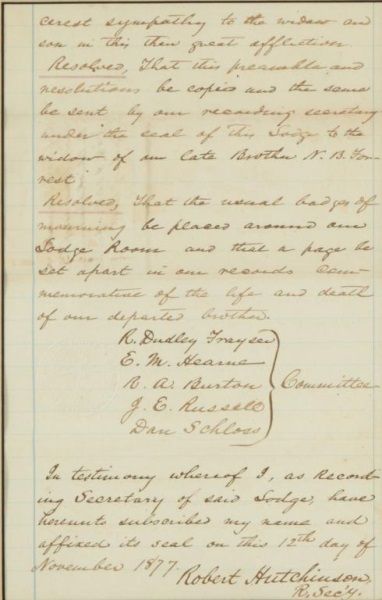 cerest sympathy to the widow and
son in this their great affliction.
Resolved, That this preamble and
resolutions be copied and the same
be sent by our recording secretary
under the seal of this Lodge to the
widow of our late Brother N. B. For-
rest
Resolved, That the usual badges of
mourning be placed around our
Lodge Room and that a page be
set apart in our records com-
memorative of the life and death
of our departed brother.
R. Dudley Frayser
E. M. Hearne
R. A. Burton
J. E. Russell
Dan Schloss
Committee
In testimony whereof I, as Record-
ing Secretary of said Lodge, have
hereunto subscribed my name and
affixed its seal on this 12th day of
November 1877.
Robert Hutchinson,
R. Sec'y.